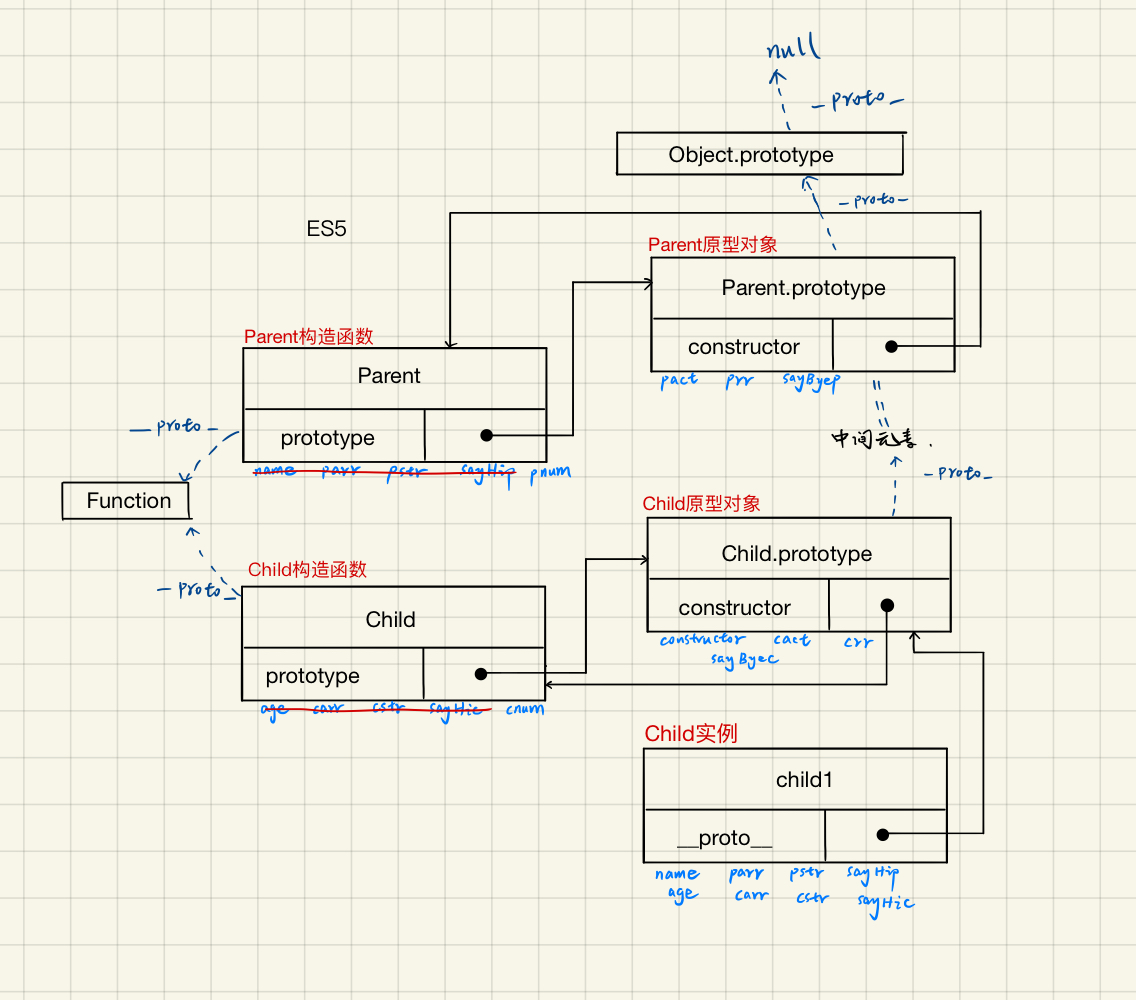 null
_proto_
Object.prototype
_proto_
ES5
Parent原型对象
Parent.prototype
constructor
pact prr sayByep
Parent构造函数
Parent
prototype
name parr pstr sayHip pnum
_proto_
中间元素.
Function
_proto_
Child原型对象
Child.prototype
constructor
constructor cact crr
sayByec
_proto_
Child构造函数
Child
prototype
age carr cstr sayHic cnum
Child实例
child1
__proto__
name parr pstr sayHip
age carr cstr sayHic